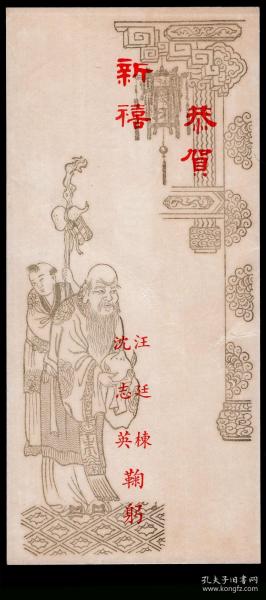 恭賀
新禧
汪廷棟
沈志英
鞠躬
孔夫子旧书网